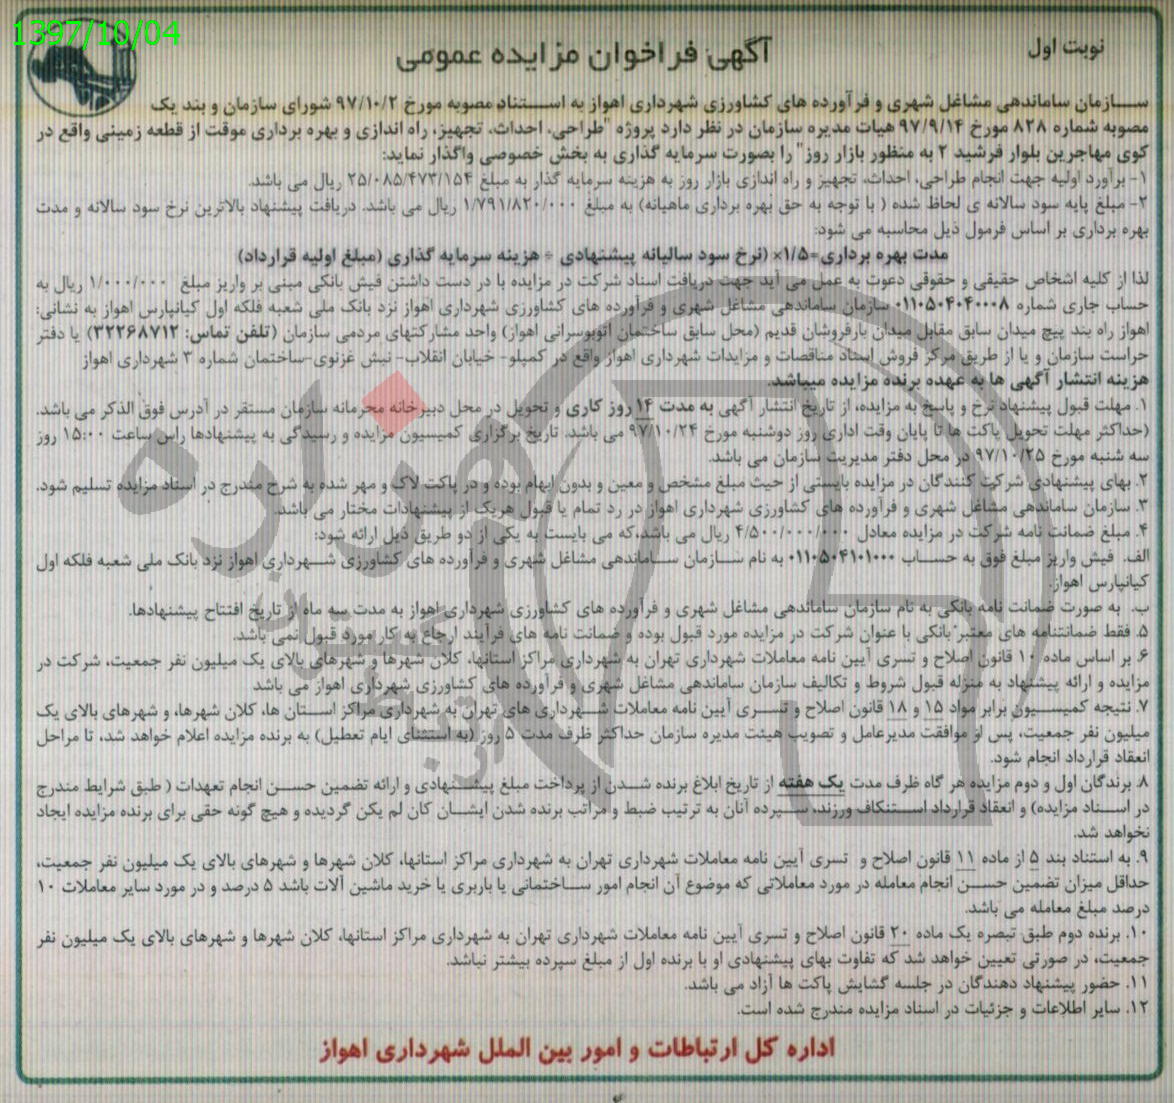 1397/10/04
نوبت اول
آگهی فراخوان مزایده عمومی
سازمان ساماندهی مشاغل شهری و فرآورده های کشاورزی شهرداری اهواز به استناد مصوبه مورخ ۹۷/۱۰/۲ شورای سازمان و بند یک
مصوبه شماره ۸۲۸ مورخ ۹۷/۹/۱۴ هیات مدیره سازمان در نظر دارد پروژه "طراحی، احداث، تجهیز، راه اندازی و بهره برداری موقت از قطعه زمینی واقع در
کوی مهاجرین بلوار فرشید ۲ به منظور بازار روز" را بصورت سرمایه گذاری به بخش خصوصی واگذار نماید:
۱- برآورد اولیه جهت انجام طراحی، احداث، تجهیز و راه اندازی بازار روز به هزینه سرمایه گذار به مبلغ ۲۵/۰۸۵/۴۷۳/۱۵۴ ریال می باشد.
۲- مبلغ پایه سود سالانه ی لحاظ شده ( با توجه به حق بهره برداری ماهیانه) به مبلغ ۱/۷۹۱/۸۲۰/۰۰۰ ریال می باشد. دریافت پیشنهاد بالاترین نرخ سود سالانه و مدت
بهره برداری بر اساس فرمول ذیل محاسبه می شود:
مدت بهره برداری=۱/۵× (نرخ سود سالیانه پیشنهادی ÷ هزینه سرمایه گذاری (مبلغ اولیه قرارداد)
لذا از کلیه اشخاص حقیقی و حقوقی دعوت به عمل می آید جهت دریافت اسناد شرکت در مزایده با در دست داشتن فیش بانکی مبنی بر واریز مبلغ ۱/۰۰۰/۰۰۰ ریال به
حساب جاری شماره ۰۱۱۰۵۰۴۰۴۰۰۰۸ سازمان ساماندهی مشاغل شهری و فرآورده های کشاورزی شهرداری اهواز نزد بانک ملی شعبه فلکه اول کیانپارس اهواز به نشانی:
اهواز راه بند پیچ میدان سابق مقابل میدان بارفروشان قدیم (محل سابق ساختمان اتوبوسرانی اهواز) واحد مشارکتهای مردمی سازمان (تلفن تماس: ۳۲۲۶۸۷۱۲) یا دفتر
حراست سازمان و یا از طریق مرکز فروش اسناد مناقصات و مزایدات شهرداری اهواز واقع در کمپلو- خیابان انقلاب- نبش غزنوی-ساختمان شماره ۳ شهرداری اهواز
هزینه انتشار آگهی ها به عهده برنده مزایده میباشد.
۱. مهلت قبول پیشنهاد نرخ و پاسخ به مزایده، از تاریخ انتشار آگهی به مدت ۱۴ روز کاری و تحویل در محل دبیرخانه محرمانه سازمان مستقر در آدرس فوق الذکر می باشد.
(حداکثر مهلت تحویل پاکت ها تا پایان وقت اداری روز دوشنبه مورخ ۹۷/۱۰/۲۴ می باشد. تاریخ برگزاری کمیسیون مزایده و رسیدگی به پیشنهادها راس ساعت ۱۵:۰۰ روز
سه شنبه مورخ ۹۷/۱۰/۲۵ در محل دفتر مدیریت سازمان می باشد.
۲. بهای پیشنهادی شرکت کنندگان در مزایده بایستی از حیث مبلغ مشخص و معین و بدون ابهام بوده و در پاکت لاک و مهر شده به شرح مندرج در اسناد مزایده تسلیم شود.
۳. سازمان ساماندهی مشاغل شهری و فرآورده های کشاورزی شهرداری اهواز در رد تمام یا قبول هریک از پیشنهادات مختار می باشد.
۴. مبلغ ضمانت نامه شرکت در مزایده معادل ۴/۵۰۰/۰۰۰/۰۰۰ ریال می باشد،که می بایست به یکی از دو طریق ذیل ارائه شود:
الف. فیش واریز مبلغ فوق به حساب ۰۱۱۰۵۰۴۱۰۱۰۰۰ به نام سازمان ساماندهی مشاغل شهری و فرآورده های کشاورزی شهرداری اهواز نزد بانک ملی شعبه فلکه اول
کیانپارس اهواز.
ب. به صورت ضمانت نامه بانکی به نام سازمان ساماندهی مشاغل شهری و فرآورده های کشاورزی شهرداری اهواز به مدت سه ماه از تاریخ افتتاح پیشنهادها.
۵. فقط ضمانتنامه های معتبر بانکی با عنوان شرکت در مزایده مورد قبول بوده و ضمانت نامه های فرآیند ارجاع به کار مورد قبول نمی باشد.
۶. بر اساس ماده ۱۰ قانون اصلاح و تسری آیین نامه معاملات شهرداری تهران به شهرداری مراکز استانها، کلان شهرها و شهرهای بالای یک میلیون نفر جمعیت، شرکت در
مزایده و ارائه پیشنهاد به منزله قبول شروط و تکالیف سازمان ساماندهی مشاغل شهری و فرآورده های کشاورزی شهرداری اهواز می باشد
۷. نتیجه کمیسیون برابر مواد ۱۵ و ۱۸ قانون اصلاح و تسری آیین نامه معاملات شهرداری های تهران به شهرداری مراکز استان ها، کلان شهرها، و شهرهای بالای یک
میلیون نفر جمعیت، پس از موافقت مدیرعامل و تصویب هیئت مدیره سازمان حداکثر ظرف مدت ۵ روز (به استثنای ایام تعطیل) به برنده مزایده اعلام خواهد شد، تا مراحل
انعقاد قرارداد انجام شود.
۸. برندگان اول و دوم مزایده هر گاه ظرف مدت یک هفته از تاریخ ابلاغ برنده شدن از پرداخت مبلغ پیشنهادی و ارائه تضمین حسن انجام تعهدات ( طبق شرایط مندرج
در اسناد مزایده) و انعقاد قرارداد استنکاف ورزند، سپرده آنان به ترتیب ضبط و مراتب برنده شدن ایشان کان لم یکن گردیده و هیچ گونه حقی برای برنده مزایده ایجاد
نخواهد شد.
۹. به استناد بند ۵ از ماده ۱۱ قانون اصلاح و تسری آیین نامه معاملات شهرداری تهران به شهرداری مراکز استانها، کلان شهرها و شهرهای بالای یک میلیون نفر جمعیت،
حداقل میزان تضمین حسن انجام معامله در مورد معاملاتی که موضوع آن انجام امور ساختمانی یا باربری یا خرید ماشین آلات باشد ۵ درصد و در مورد سایر معاملات ۱۰
درصد مبلغ معامله می باشد.
۱۰. برنده دوم طبق تبصره یک ماده ۲۰ قانون اصلاح و تسری آیین نامه معاملات شهرداری تهران به شهرداری مراکز استانها، کلان شهرها و شهرهای بالای یک میلیون نفر
جمعیت، در صورتی تعیین خواهد شد که تفاوت بهای پیشنهادی او با برنده اول از مبلغ سپرده بیشتر نباشد.
۱۱. حضور پیشنهاد دهندگان در جلسه گشایش پاکت ها آزاد می باشد.
۱۲. سایر اطلاعات و جزئیات در اسناد مزایده مندرج شده است.
اداره کل ارتباطات و امور بین الملل شهرداری اهواز